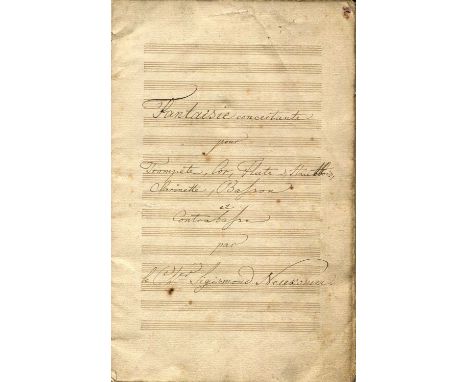 Fantaisie concertante
pour
Trompète, Cor, Flûte, Hautbois,
Clarinette, Basson
et
Contrabasse
par
le Ch.er Sigismond Neukomm.